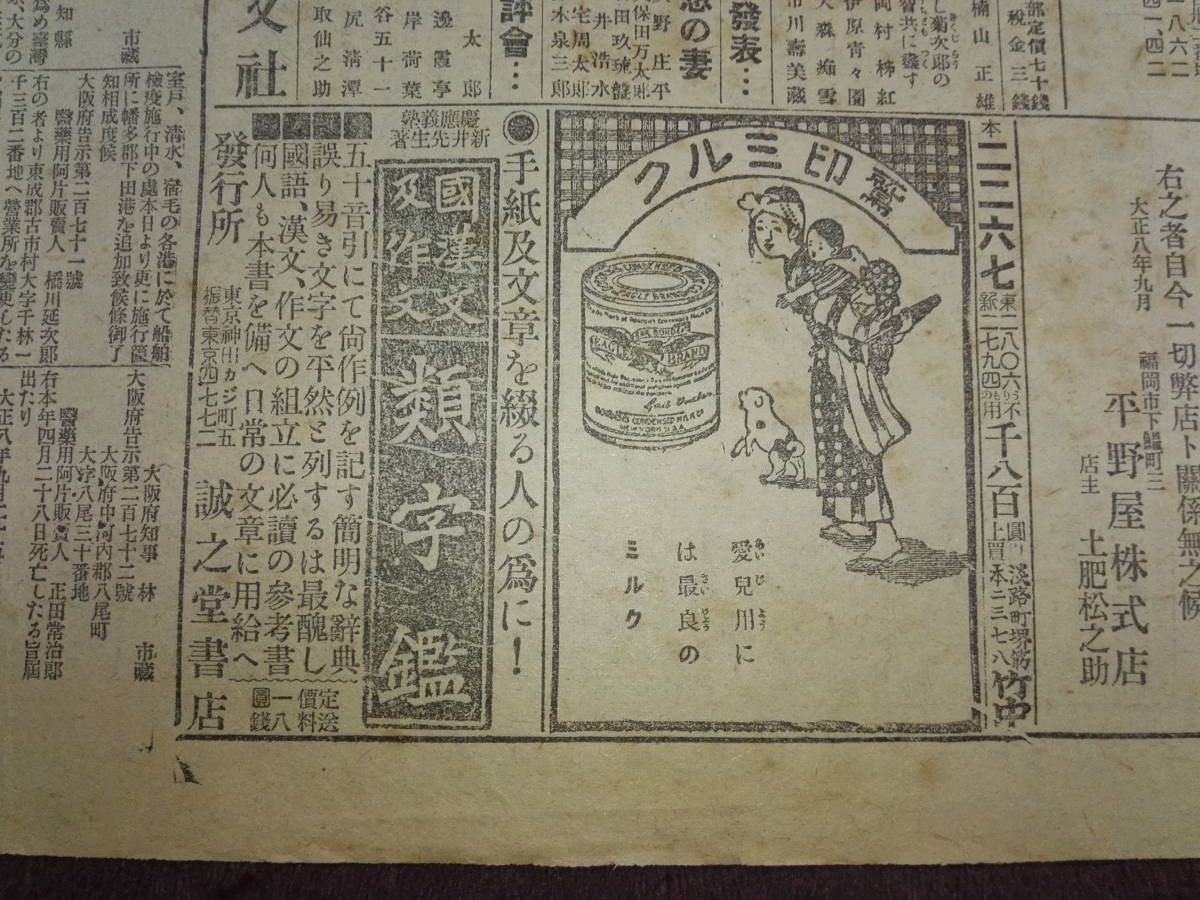 部定價七十錢
税金三錢
楠山正雄
し菊次郎の
智共に盡す
岡村柿紅
伊原青々園
大森痴雪
市川壽美藏
發表…
の妻
久保田万太郎
木泉三郎
評會…
太郎
邊霞亭
岸菏葉
谷五十一
尻淸潭
取仙之助
文社
右之者自今一切弊店ト關係無之候
大正八年九月
福岡市下鰮町三
平野屋株式店
店主
土肥松之助
本二二六七
千八百
淡路町堺筋
本二三七八
竹中
鷲印ミルク
EAGLE BRAND
EAGLE BRAND
BORDEN'S CONDENSED MILK CO
NEW YORK U.S.A.
愛兒用に
あいじよう
は最良の
さいりよう
ミルク
◉手紙及文章を綴る人の爲に!
慶應義塾
新井先生著
國語漢文
及作文
類字鑑
五十音引にて尙作例を記す簡明な辭典
誤り易き文字を平然と列するは最醜し
國語、漢文、作文の組立に必讀の參考書
何人も本書を備へ日常の文章に用給へ
定價一圓
送料八錢
發行所
東京神田カジ町五
振替東京四七七二
誠之堂書店
市藏
室戸、淸水、宿毛の各港に於て船舶
檢疫施行中の處本日より更に施行箇
所に幡多郡下田港を追加致候條御了
知相成度候
大阪府告示第二百七十一號
醫藥用阿片販賣人 橋川延次郎
右の者より東成郡古市村大字千林一
千三百二番地へ營業所を變更したる
大阪府知事 林 市藏
大阪府告示第二百七十二號
大阪府中河內郡八尾町
大字八尾三十番地
醫藥用阿片販賣人 正田常治郎
右本年四月二十八日死亡したる旨屆
出たり